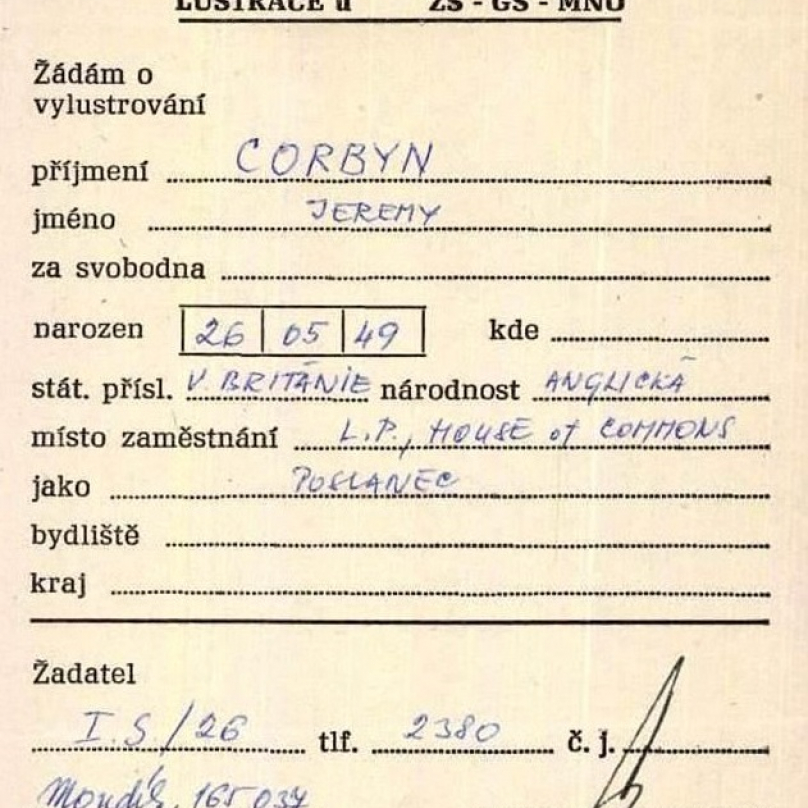 LUSTRACE u ZS - GS - MNO
Žádám o
vylustrování
příjmení CORBYN
jméno JEREMY
za svobodna
narozen 26 05 49 kde
stát. přísl. V. BRITÁNIE národnost ANGLICKÁ
místo zaměstnání L.P., HOUSE of COMMONS
jako POSLANEC
bydliště
kraj
Žadatel
I.S./26 tlf. 2380 č. j.
165 037